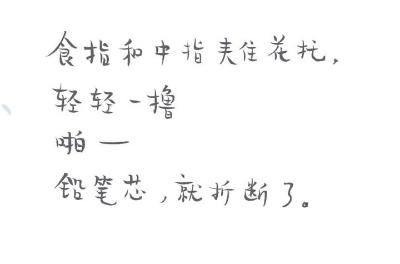 食指和中指夹住花托,
轻轻一撸
啪一
铅笔芯,就折断了。